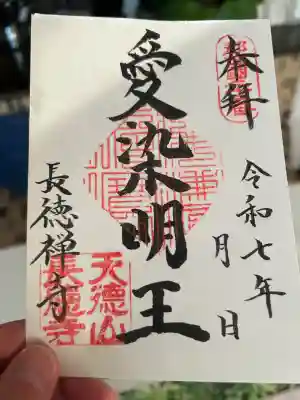 奉拝
令和七年
月 日
愛染明王
長徳禅寺
天徳山
長徳寺